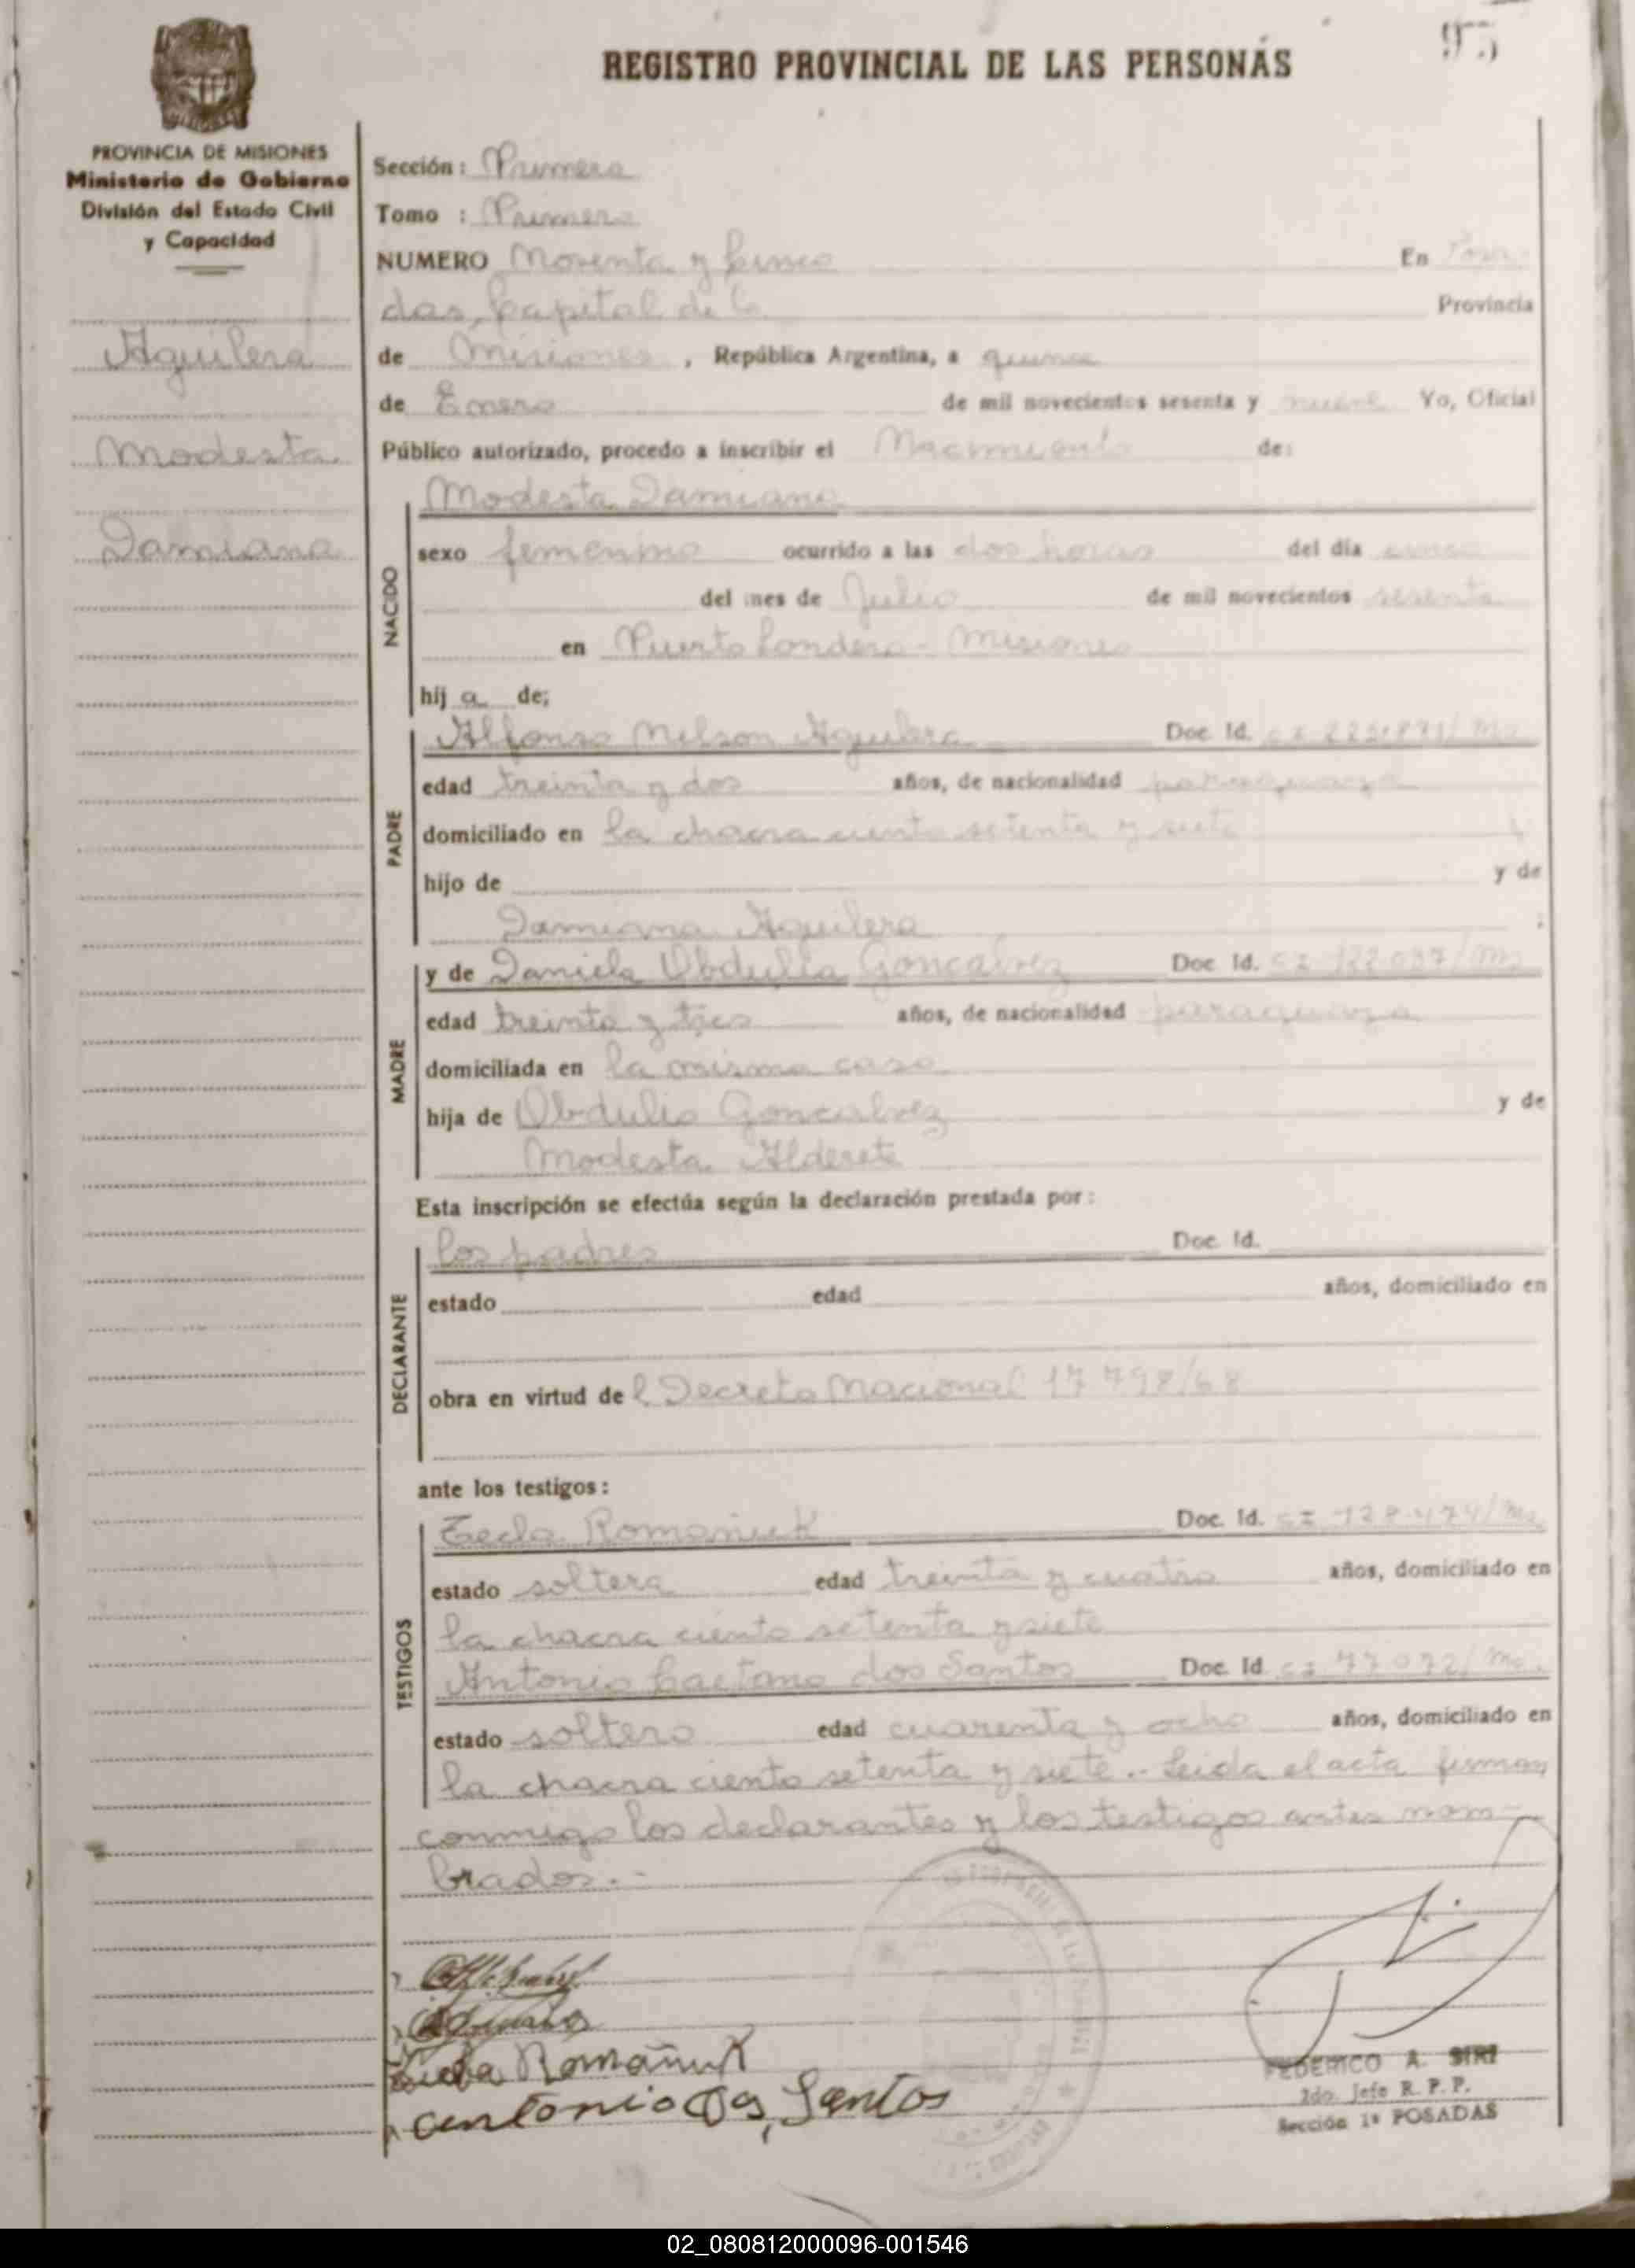 95
REGISTRO PROVINCIAL DE LAS PERSONAS
PROVINCIA DE MISIONES
Ministerio de Gobierno
División del Estado Civil
y Capacidad
Aguilera
Modesta
Damiana
Sección: Primera
Tomo : Primero
NUMERO Noventa y Cinco En Posa-
das, Capital de la Provincia
de Misiones, República Argentina, a quince
de Enero de mil novecientos sesenta y nueve Yo, Oficial
Público autorizado, procedo a inscribir el Nacimiento de:
NACIDO
Modesta Damiana
sexo femenino ocurrido a las dos horas del día cinco
del mes de Julio de mil novecientos sesenta
en Puerto Londero - Misiones
hij a de;
PADRE
Alfonso Nelson Aguilera Doc. Id.
edad treinta y dos años, de nacionalidad paraguaya
domiciliado en la chacra ciento setenta y siete
hijo de y de
Damiana Aguilera
MADRE
y de Daniela Obdulia Goncalvez Doc. Id. CI 122.037/Ms
edad treinta y tres años, de nacionalidad paraguaya
domiciliada en la misma casa
hija de Obdulio Goncalvez y de
Modesta Alderete
Esta inscripción se efectúa según la declaración prestada por:
DECLARANTE
los padres Doc. Id.
estado edad años, domiciliado en
obra en virtud de l Decreto Nacional 17798/68
ante los testigos:
TESTIGOS
Tecla Romaniuk Doc. Id. CI 128.474/Ms
estado soltera edad treinta y cuatro años, domiciliado en
la chacra ciento setenta y siete
Antonio Caetano dos Santos Doc. Id CI 77072/Ms.
estado soltero edad cuarenta y ocho años, domiciliado en
la chacra ciento setenta y siete.- Leida el acta firman
conmigo los declarantes y los testigos antes nom-
brados.-
Tecla Romañuk
antonio Dos Santos
FEDERICO A. SIRI
2do. Jefe R. P. P.
Sección 1ª POSADAS
02_080812000096-001546